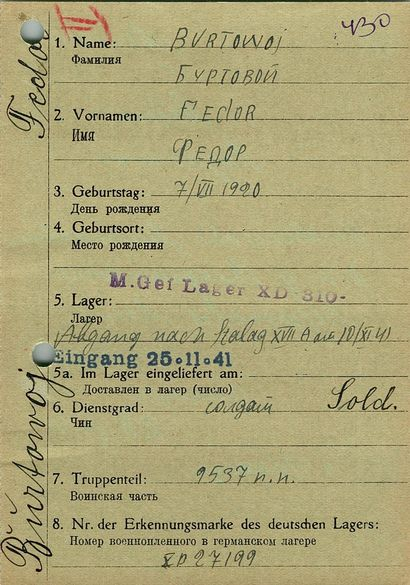 430
Fedor
1. Name: BURTOWOJ
Фамилия
БУРТОВОЙ
2. Vornamen: FEDOR
Имя
ФЕДОР
3. Geburtstag: 7/VII 1920
День рождения
4. Geburtsort:
Место рождения
M.Gef Lager XD 310-
5. Lager:
Лагер
Abgang nach Stalag XVII A am 10/XI 41
Eingang 25.11.41
5a. Im Lager eingeliefert am:
Доставлен в лагер (число)
6. Dienstgrad: солдат Sold.
Чин
7. Truppenteil: 9537 п.п.
Воинская часть
8. Nr. der Erkennungsmarke des deutschen Lagers:
Номер военнопленного в германском лагере
XD 27199
Burtowoj